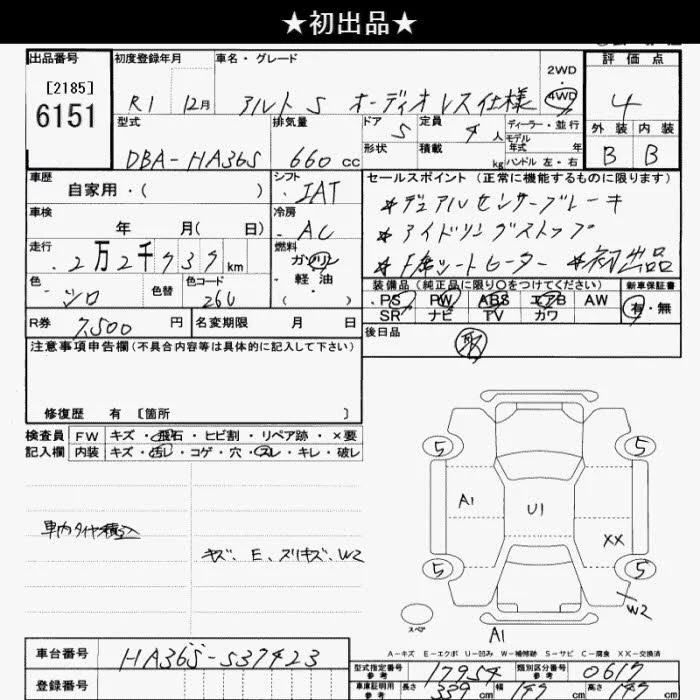 ★初出品★
出品番号
[2185]
6151
初度登録年月
R1 12月
車名・グレード
アルト S オーディオレス仕様
2WD
4WD
評価点
4
外装 内装
B B
型式
DBA-HA36S
排気量
660 cc
ドア
5
定員
4 人
形状
積載
kg
ディーラー・並行
モデル
年式 年
ハンドル 左・右
車歴
自家用・( )
シフト
IAT
車検
年 月( 日)
冷房
AC
走行
2万2千737km
燃料
ガソリン
・軽油
・( )
色
シロ
色替
色コード
26U
R券
7,500 円
名変期限 月 日
セールスポイント(正常に機能するものに限ります)
*デュアルセンサーブレーキ
*アイドリングストップ
*F席シートヒーター *初出品
装備品(純正品に限り○をつけてください)
PS PW ABS エアB AW
SR ナビ TV カワ
新車保証書
有・無
後日品
注意事項申告欄(不具合内容等は具体的に記入して下さい)
修復歴 有 〔箇所 〕
検査員
記入欄
FW キズ・飛石・ヒビ割・リペア跡・×要
内装 キズ・汚レ・コゲ・穴・スレ・キレ・破レ
車内タイヤ積込
キズ、E、スリキズ、W2
5 5
A1
U1
XX
5 5
W2
スペア
A1
A-キズ E-エクボ U-凹み W-補修跡 S-サビ C-腐食 XX-交換済
車台番号
HA36S-537423
登録番号
型式指定番号
参考
17954
類別区分番号
参考
0617
車庫証明用
参考
長さ 339 cm
幅 147 cm
高さ 149 cm